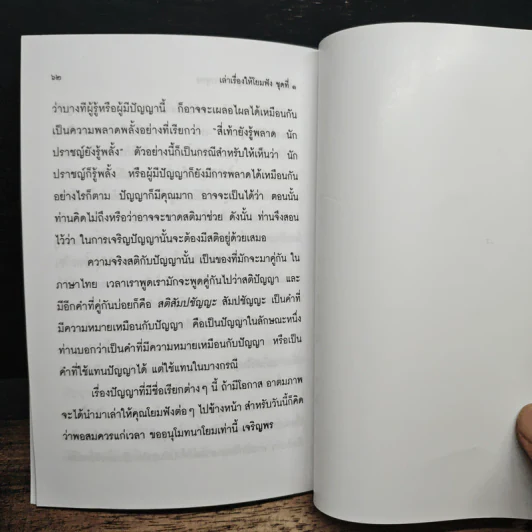 ๖๒
เล่าเรื่องให้โยมฟัง ชุดที่ ๑
ว่าบางทีผู้รู้หรือผู้มีปัญญานี้ ก็อาจจะเผลอไผลได้เหมือนกัน
เป็นความพลาดพลั้งอย่างที่เรียกว่า "สี่เท้ายังรู้พลาด นัก
ปราชญ์ยังรู้พลั้ง" ตัวอย่างนี้ก็เป็นกรณีสำหรับให้เห็นว่า นัก
ปราชญ์ก็รู้พลั้ง หรือผู้มีปัญญาก็ยังมีการพลาดได้เหมือนกัน
อย่างไรก็ตาม ปัญญาก็มีคุณมาก อาจจะเป็นได้ว่า ตอนนั้น
ท่านคิดไม่ถึงหรือว่าอาจจะขาดสติมาช่วย ดังนั้น ท่านจึงสอน
ไว้ว่า ในการเจริญปัญญานั้นจะต้องมีสติอยู่ด้วยเสมอ
ความจริงสติกับปัญญานั้น เป็นของที่มักจะมาคู่กัน ใน
ภาษาไทย เวลาเราพูดเรามักจะพูดคู่กันไปว่าสติปัญญา และ
มีอีกคำที่คู่กันบ่อยก็คือ สติสัมปชัญญะ สัมปชัญญะ เป็นคำที่
มีความหมายเหมือนกับปัญญา คือเป็นปัญญาในลักษณะหนึ่ง
ท่านบอกว่าเป็นคำที่มีความหมายเหมือนกับปัญญา หรือเป็น
คำที่ใช้แทนปัญญาได้ แต่ใช้แทนในบางกรณี
เรื่องปัญญาที่มีชื่อเรียกต่างๆ นี้ ถ้ามีโอกาส อาตมภาพ
จะได้นำมาเล่าให้คุณโยมฟังต่อๆ ไปข้างหน้า สำหรับวันนี้ก็คิด
ว่าพอสมควรแก่เวลา ขออนุโมทนาโยมเท่านี้ เจริญพร